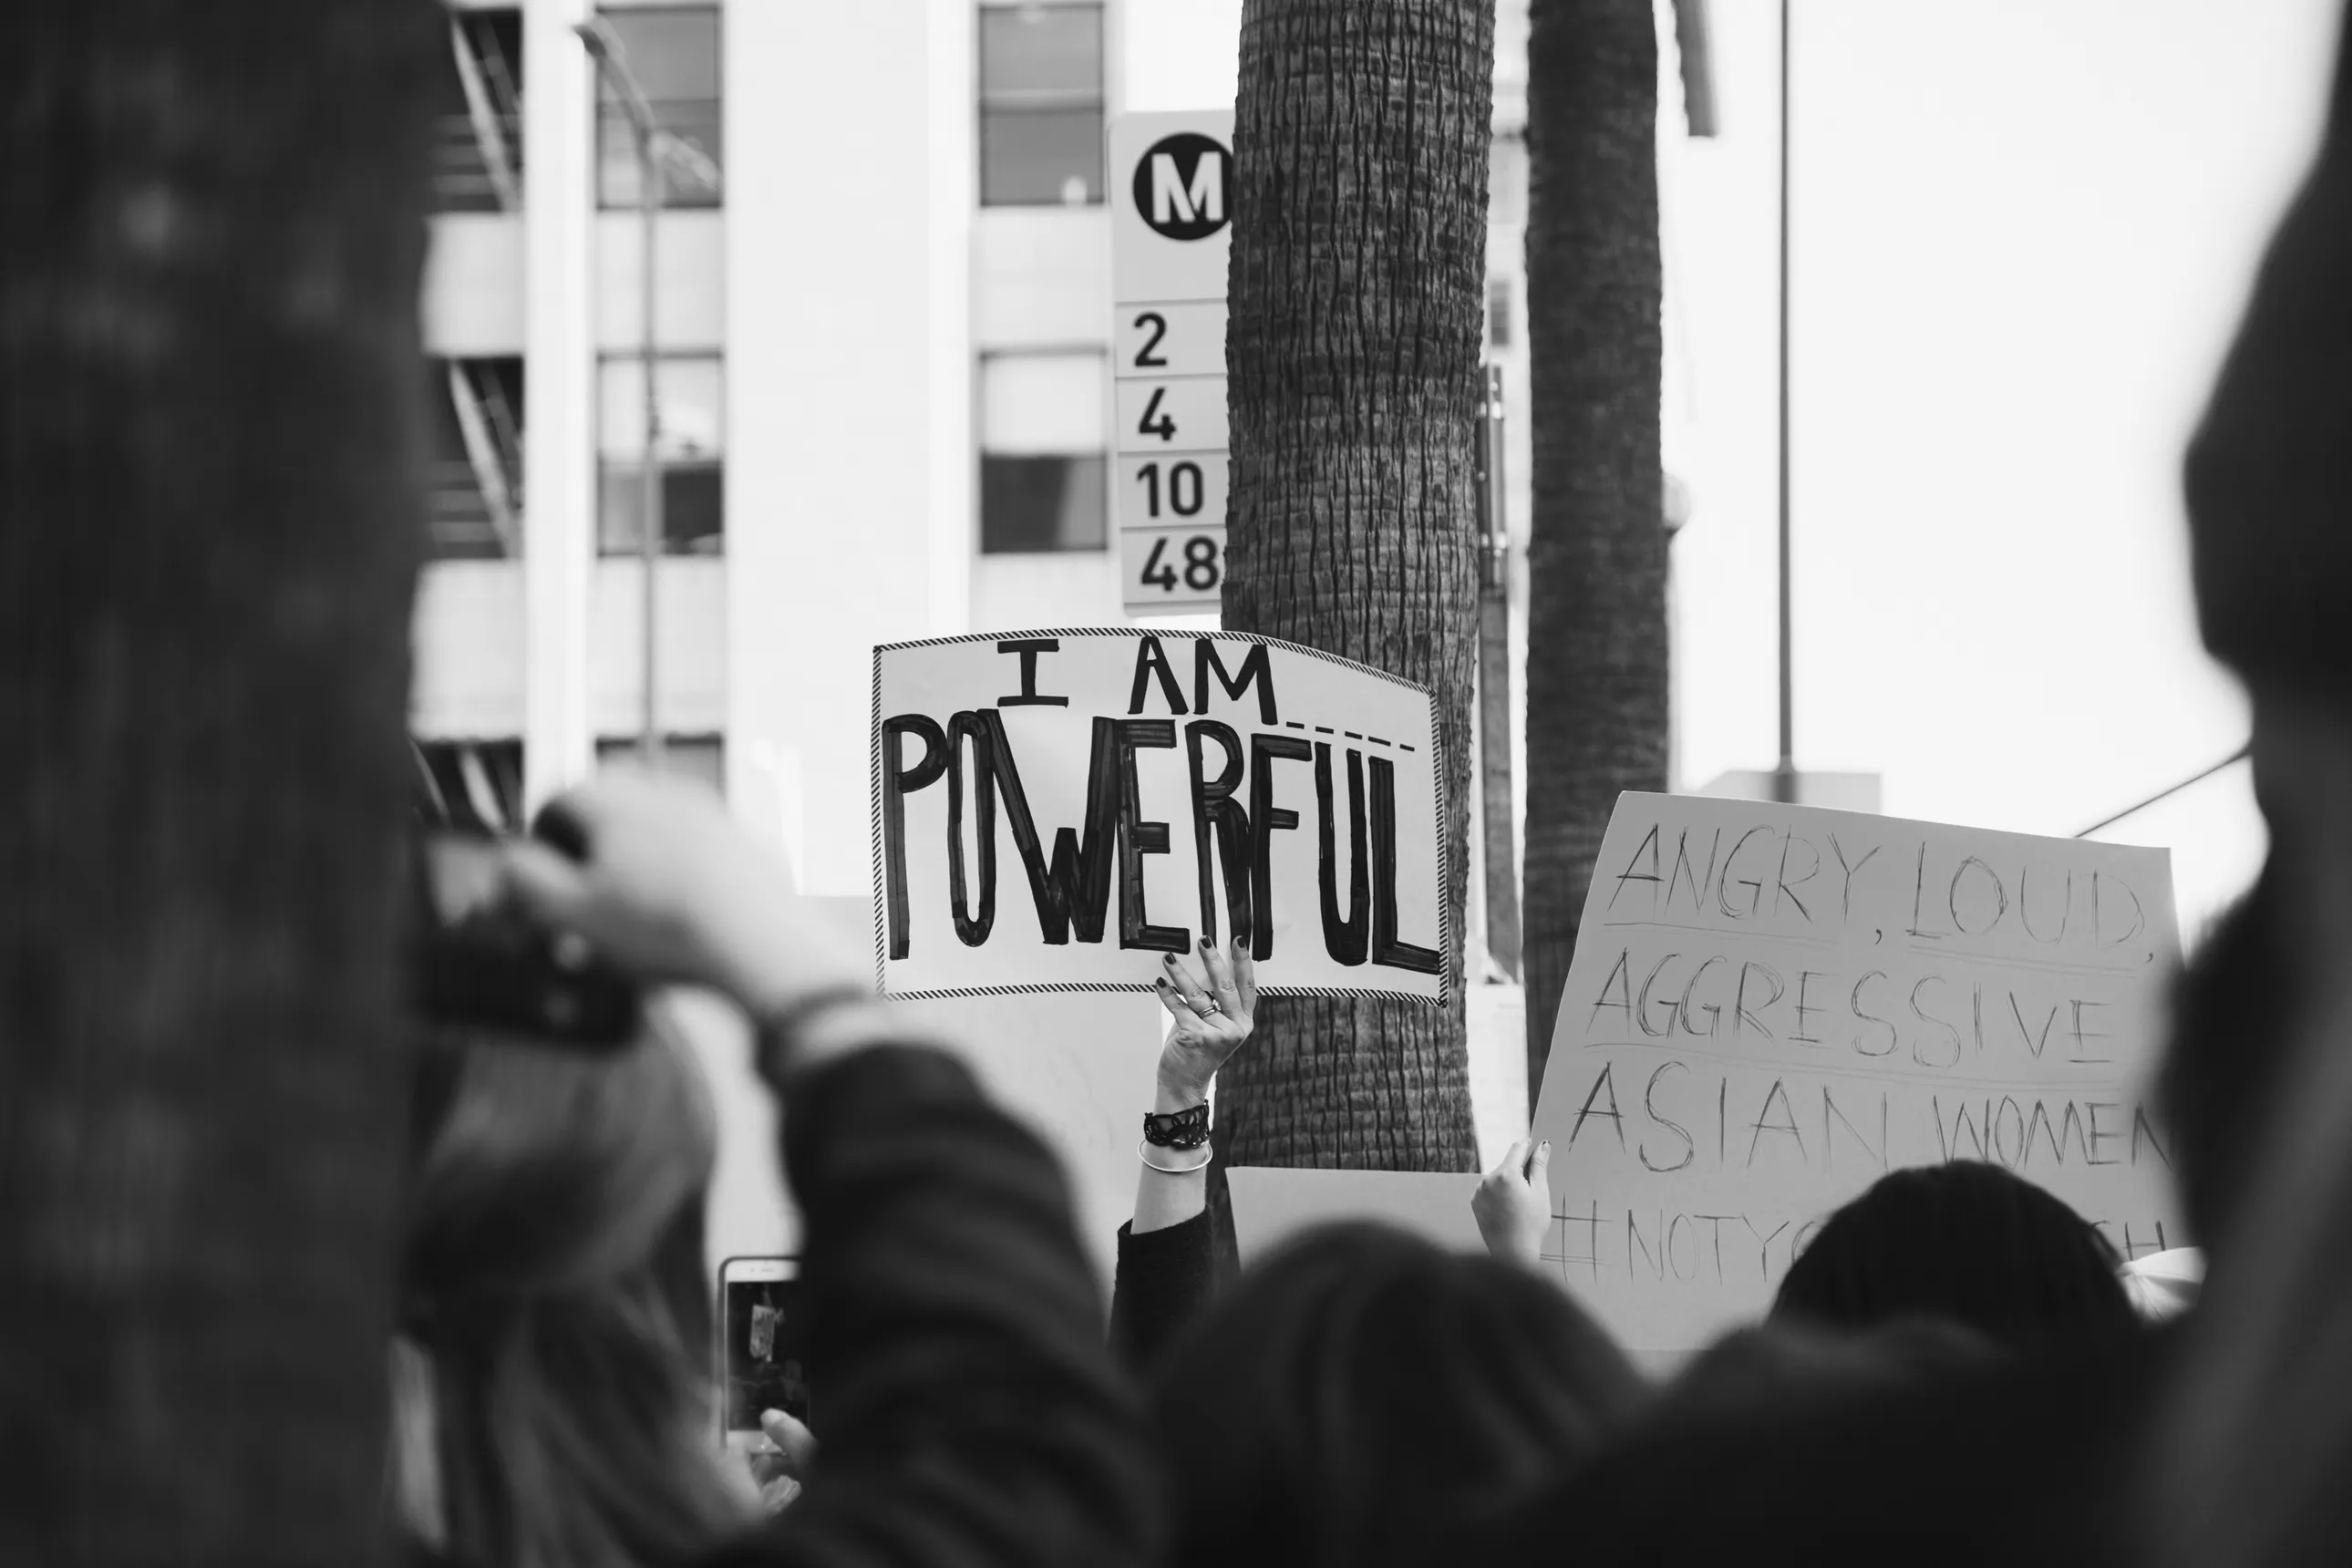 M
2
4
10
48
I AM______
POWERFUL
ANGRY, LOUD,
AGGRESSIVE
ASIAN WOMEN